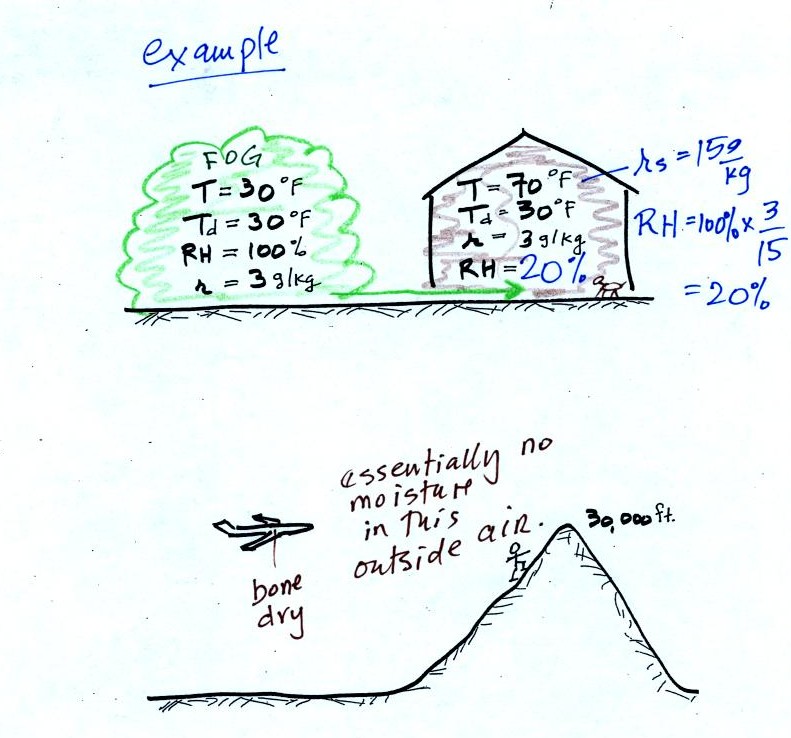 example
FOG
T = 30°F
Td = 30°F
RH = 100%
r = 3 g/kg
T = 70°F
Td = 30°F
r = 3 g/kg
RH = 20%
rs = 15 g/kg
RH = 100% x 3/15
= 20%
essentially no
moisture
in this
outside air.
30,000 ft.
bone
dry